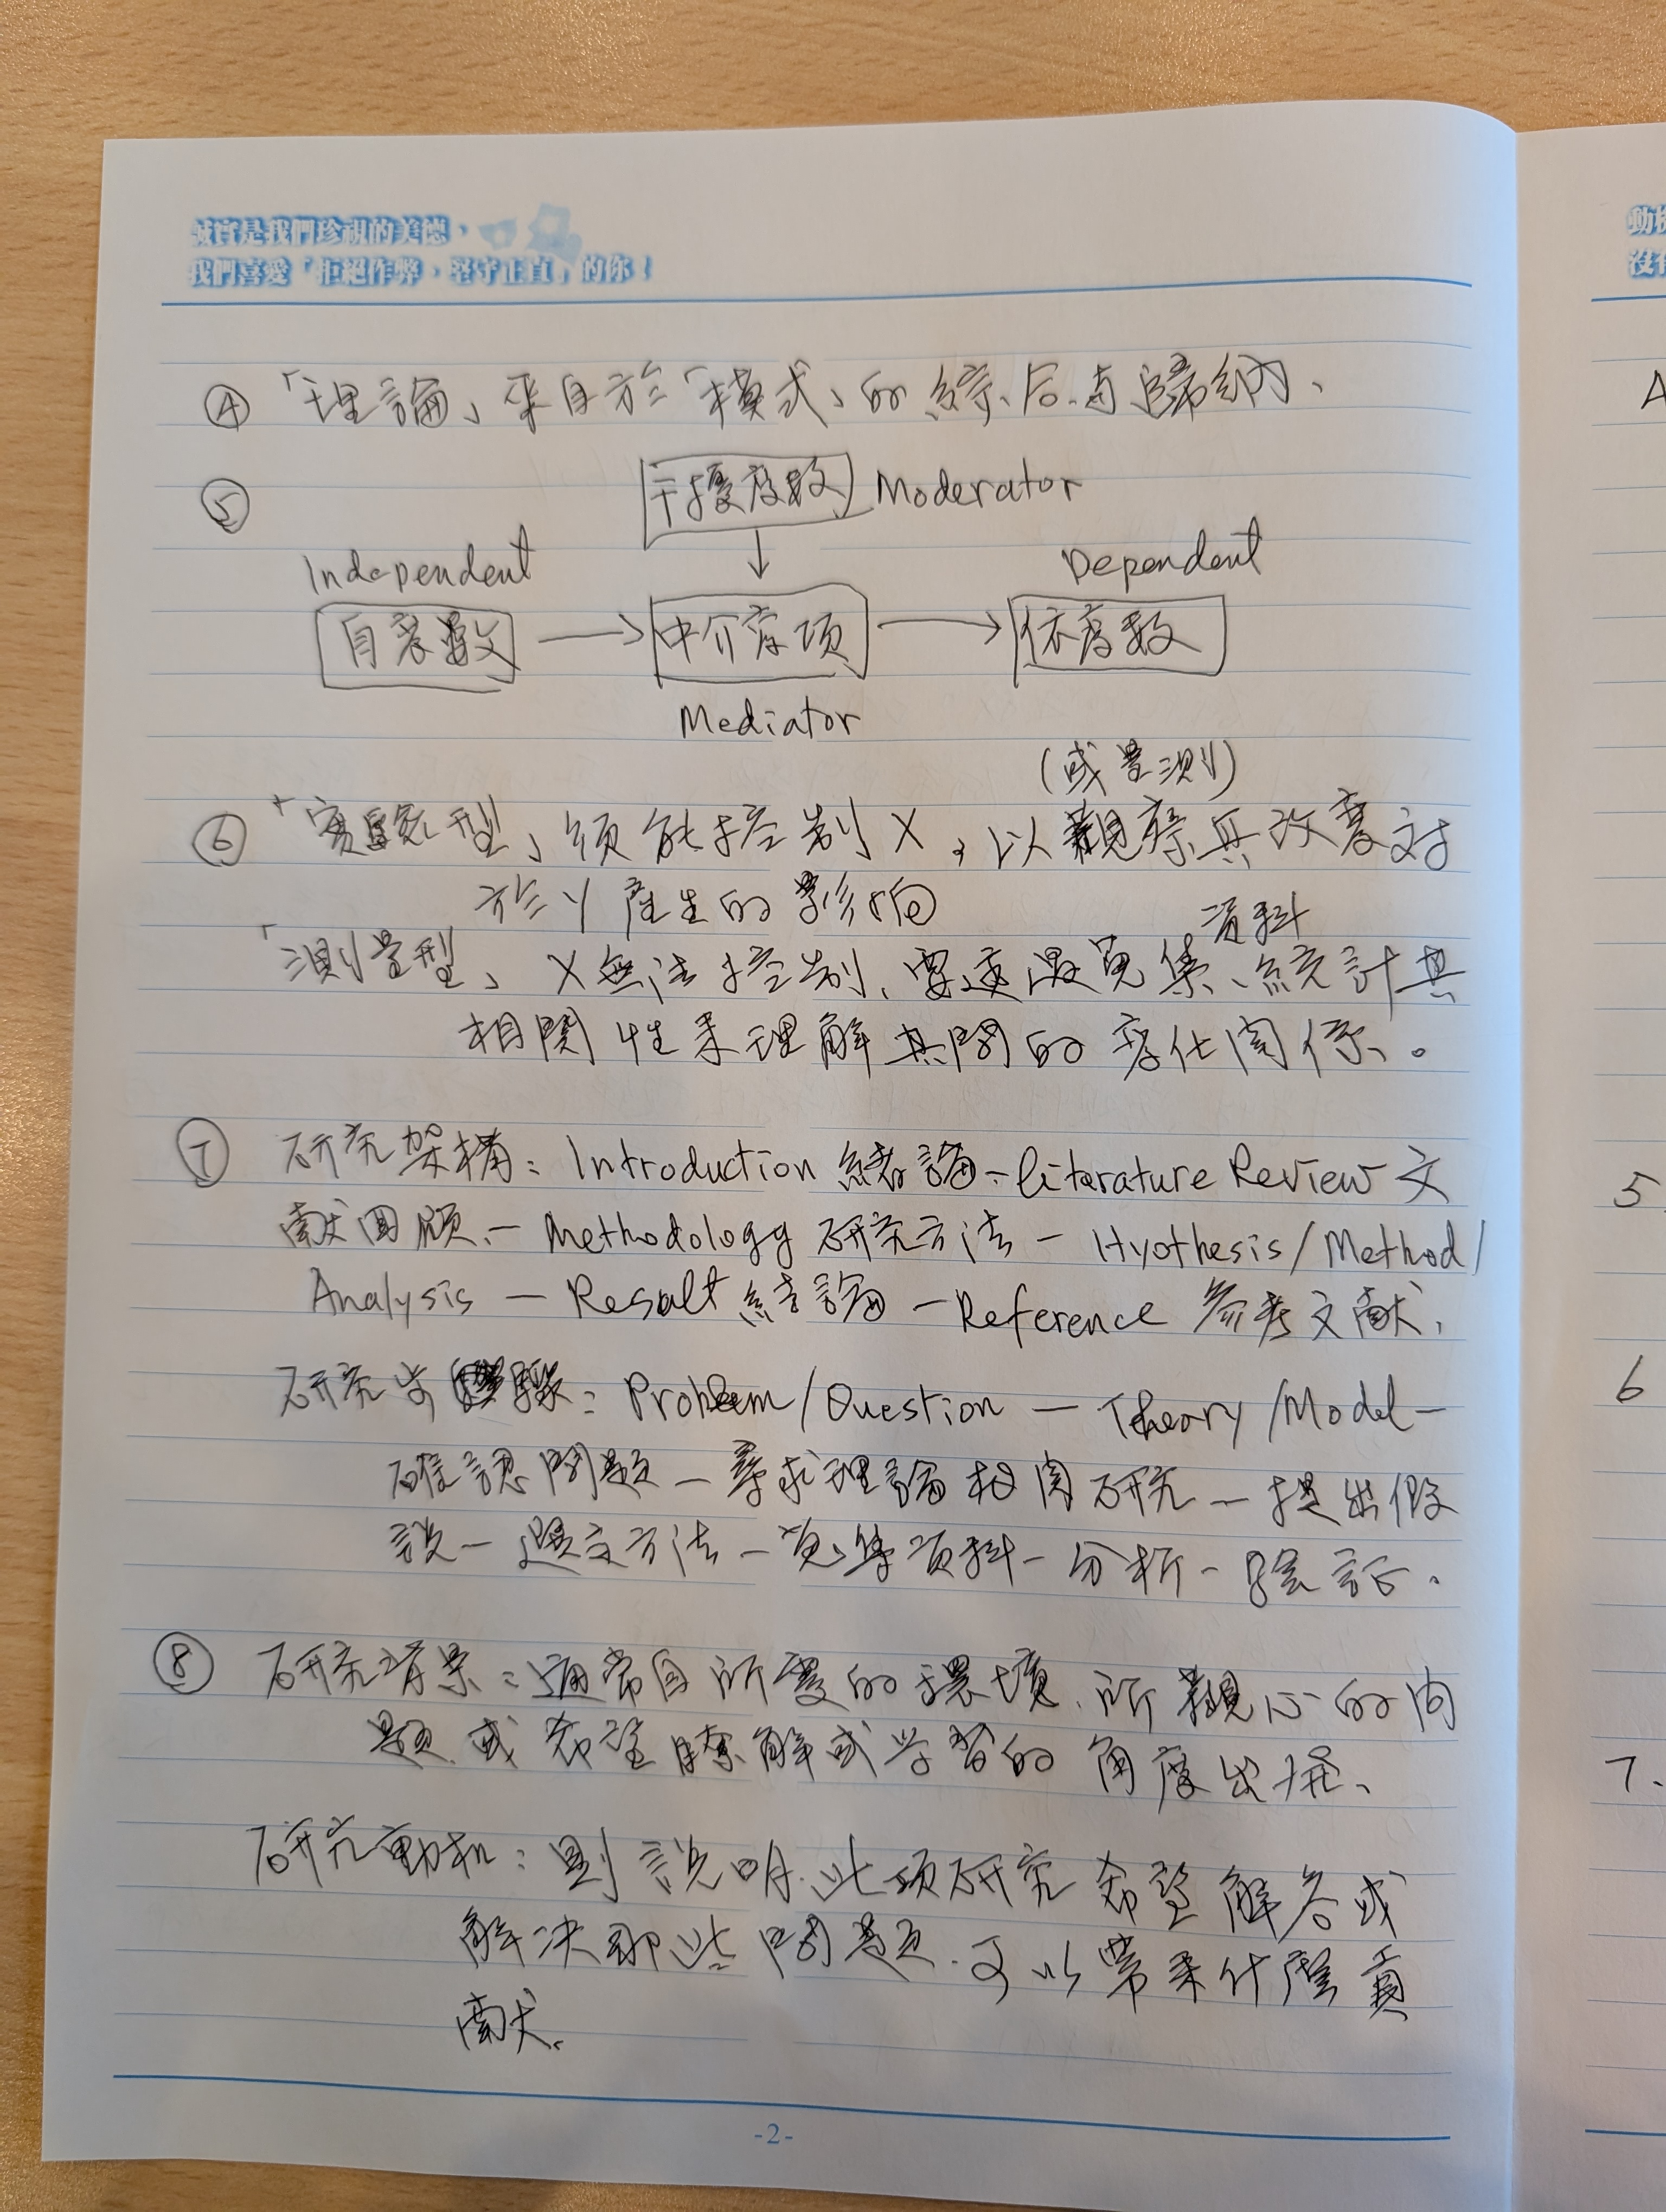 誠實是我們珍視的美德，
我們喜愛「拒絕作弊，堅守正直」的你！
④「理論」來自於「模式」的綜合與歸納、
⑤
干擾變數 Moderator
Independent Dependent
自變數 → 中介變項 → 依變數
Mediator
(或量測)
⑥「實驗型」須能控制X，以觀察其改變對
於Y產生的影响
資料
「測量型」X無法控制、需透過蒐集、統計其
相關性來理解其間的變化関係。
⑦ 研究架構：Introduction 緒論－Literature Review 文
献回顧－Methodology 研究方法－Hyothesis/Method/
Analysis － Result 結論－Reference 參考文献、
研究步驟：Problem/Question － Theory/Model－
確認問題－尋求理論相関研究－提出假
說－選定方法－蒐集資料－分析－驗証、
⑧ 研究背景：通常自所處的環境、所觀心的问
題、或希望瞭解或学習的角度出發、
研究動机：則説明此項研究希望解答或
解决那些問題、可以帶來什麼貢
献、
-2-
動機
沒有
4
5
6
7.